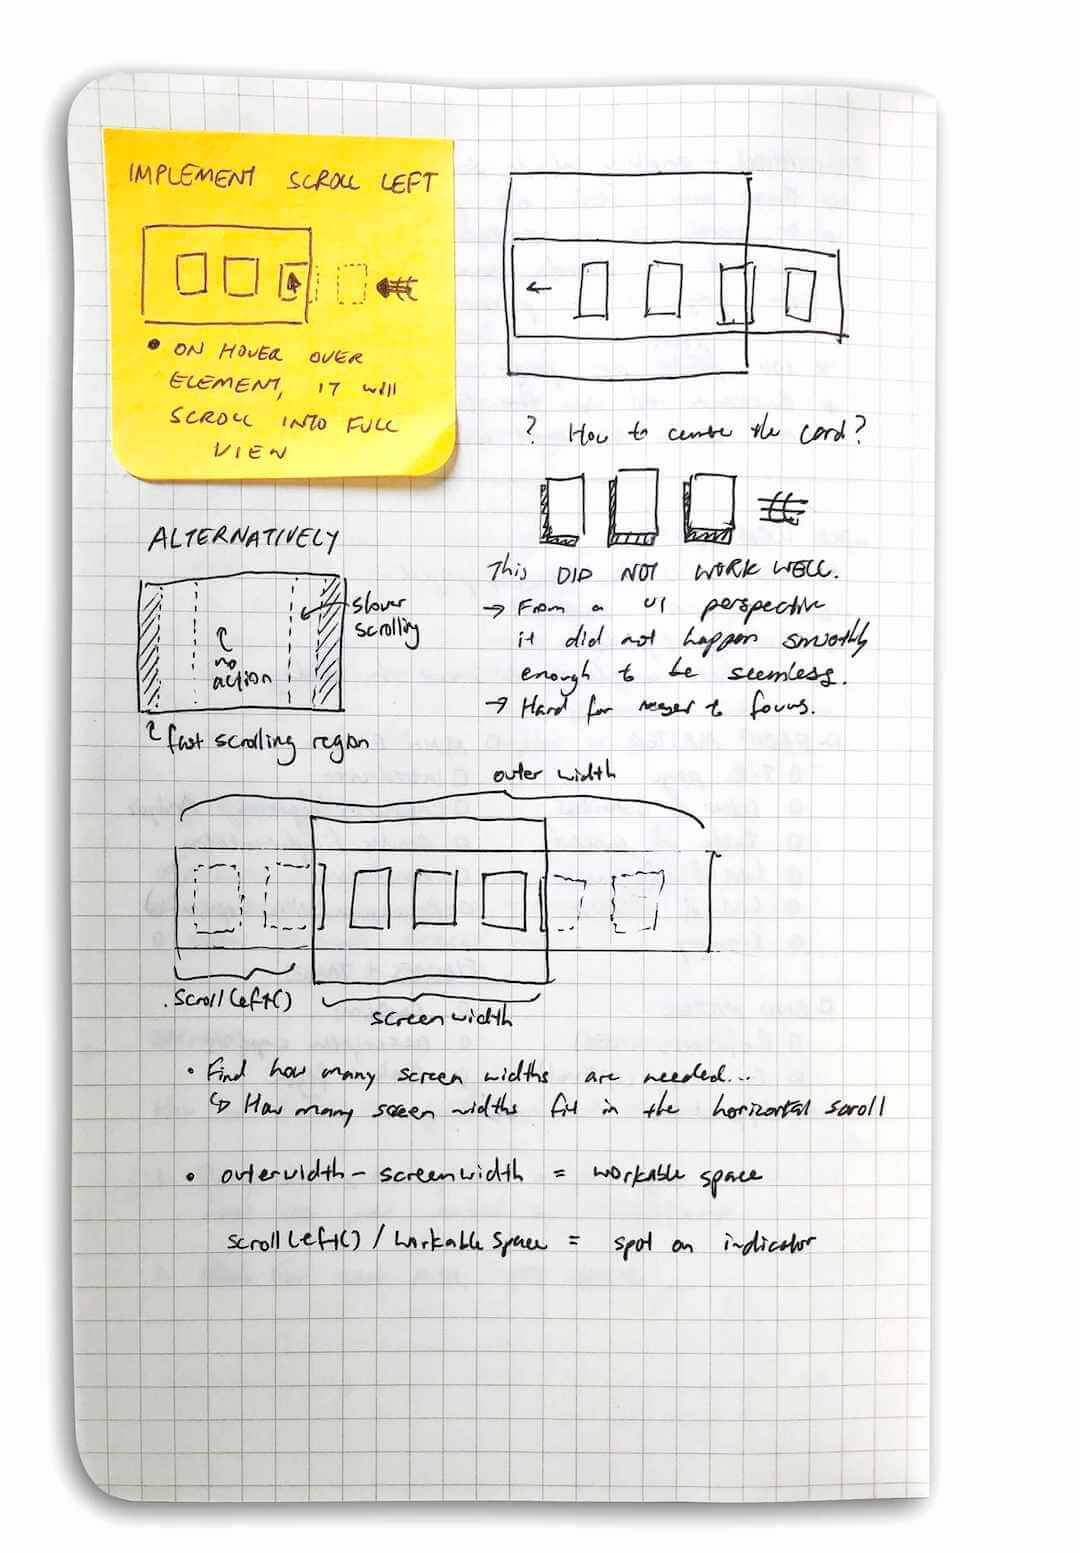 IMPLEMENT SCROLL LEFT
• ON HOVER OVER
ELEMENT, IT will
SCROLL INTO FULL
VIEW
? How to centre the card?
This DID NOT WORK WELL.
→ From a UI perspective
it did not happen smoothly
enough to be seemless.
→ Hard for to focus.
ALTERNATIVELY
slower
scrolling
no
action
fast scrolling region
outer width
.scrollLeft()
screenwidth
• Find how many screen widths are needed...
↳ How many screen widths fit in the horizontal scroll
• outerwidth - screenwidth = workable space
scrollLeft() / workable space = spot on indicator